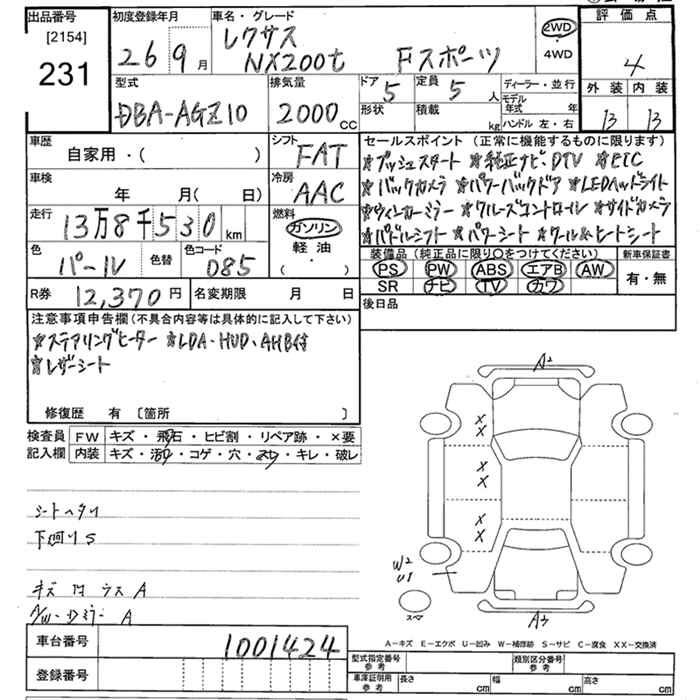 出品番号 初度登録年月 車名・グレード 評価点
[2154] レクサス 2WD
231 26 9月 NX200t Fスポーツ ・4WD 4
型式 排気量 ドア 定員 ディーラー・並行 外装 内装
5 5人 モデル年式 年
DBA-AGZ10 2000cc 形状 積載 kg ハンドル 左・右 B B
車歴 シフト セールスポイント(正常に機能するものに限ります)
自家用・( ) FAT ★プッシュスタート ★純正ナビ、DTV ★ETC
車検 冷房 ★バックカメラ ★パワーバックドア ★LEDヘッドライト
年 月( 日) AAC ★ウィンカーミラー ★クルーズコントロール ★サイドカメラ
走行 燃料 ★パドルシフト ★パワーシート ★クール&ヒートシート
13万8千530km ガソリン
色 色替 色コード 軽油・ 装備品(純正品に限り○をつけてください) 新車保証書
パール 085 ( ・ ) PS PW ABS エアB AW 有・無
SR ナビ TV カワ
R券 12,370円 名変期限 月 日 後日品
注意事項申告欄(不具合内容等は具体的に記入して下さい)
★ステアリングヒーター ★LDA・HUD、AHB付
★レザーシート
修復歴 有 [箇所 ]
検査員 FW キズ・飛石・ヒビ割・リペア跡・×要
記入欄 内装 キズ・コゲ・穴・スリ・キレ・破レ
A2
X
X
X
X
X
X
シートヘタリ
下回りS
W2
U1
キズ 凹 ラス A
A/W・Dミラー A
スペ
A3
A-キズ E-エクボ U-凹み W-補修跡 S-サビ C-腐食 XX-交換済
車台番号 1001424
型式指定番号 参考 類別区分番号 参考
登録番号
車庫証明用 参考 長さ cm 幅 cm 高さ cm